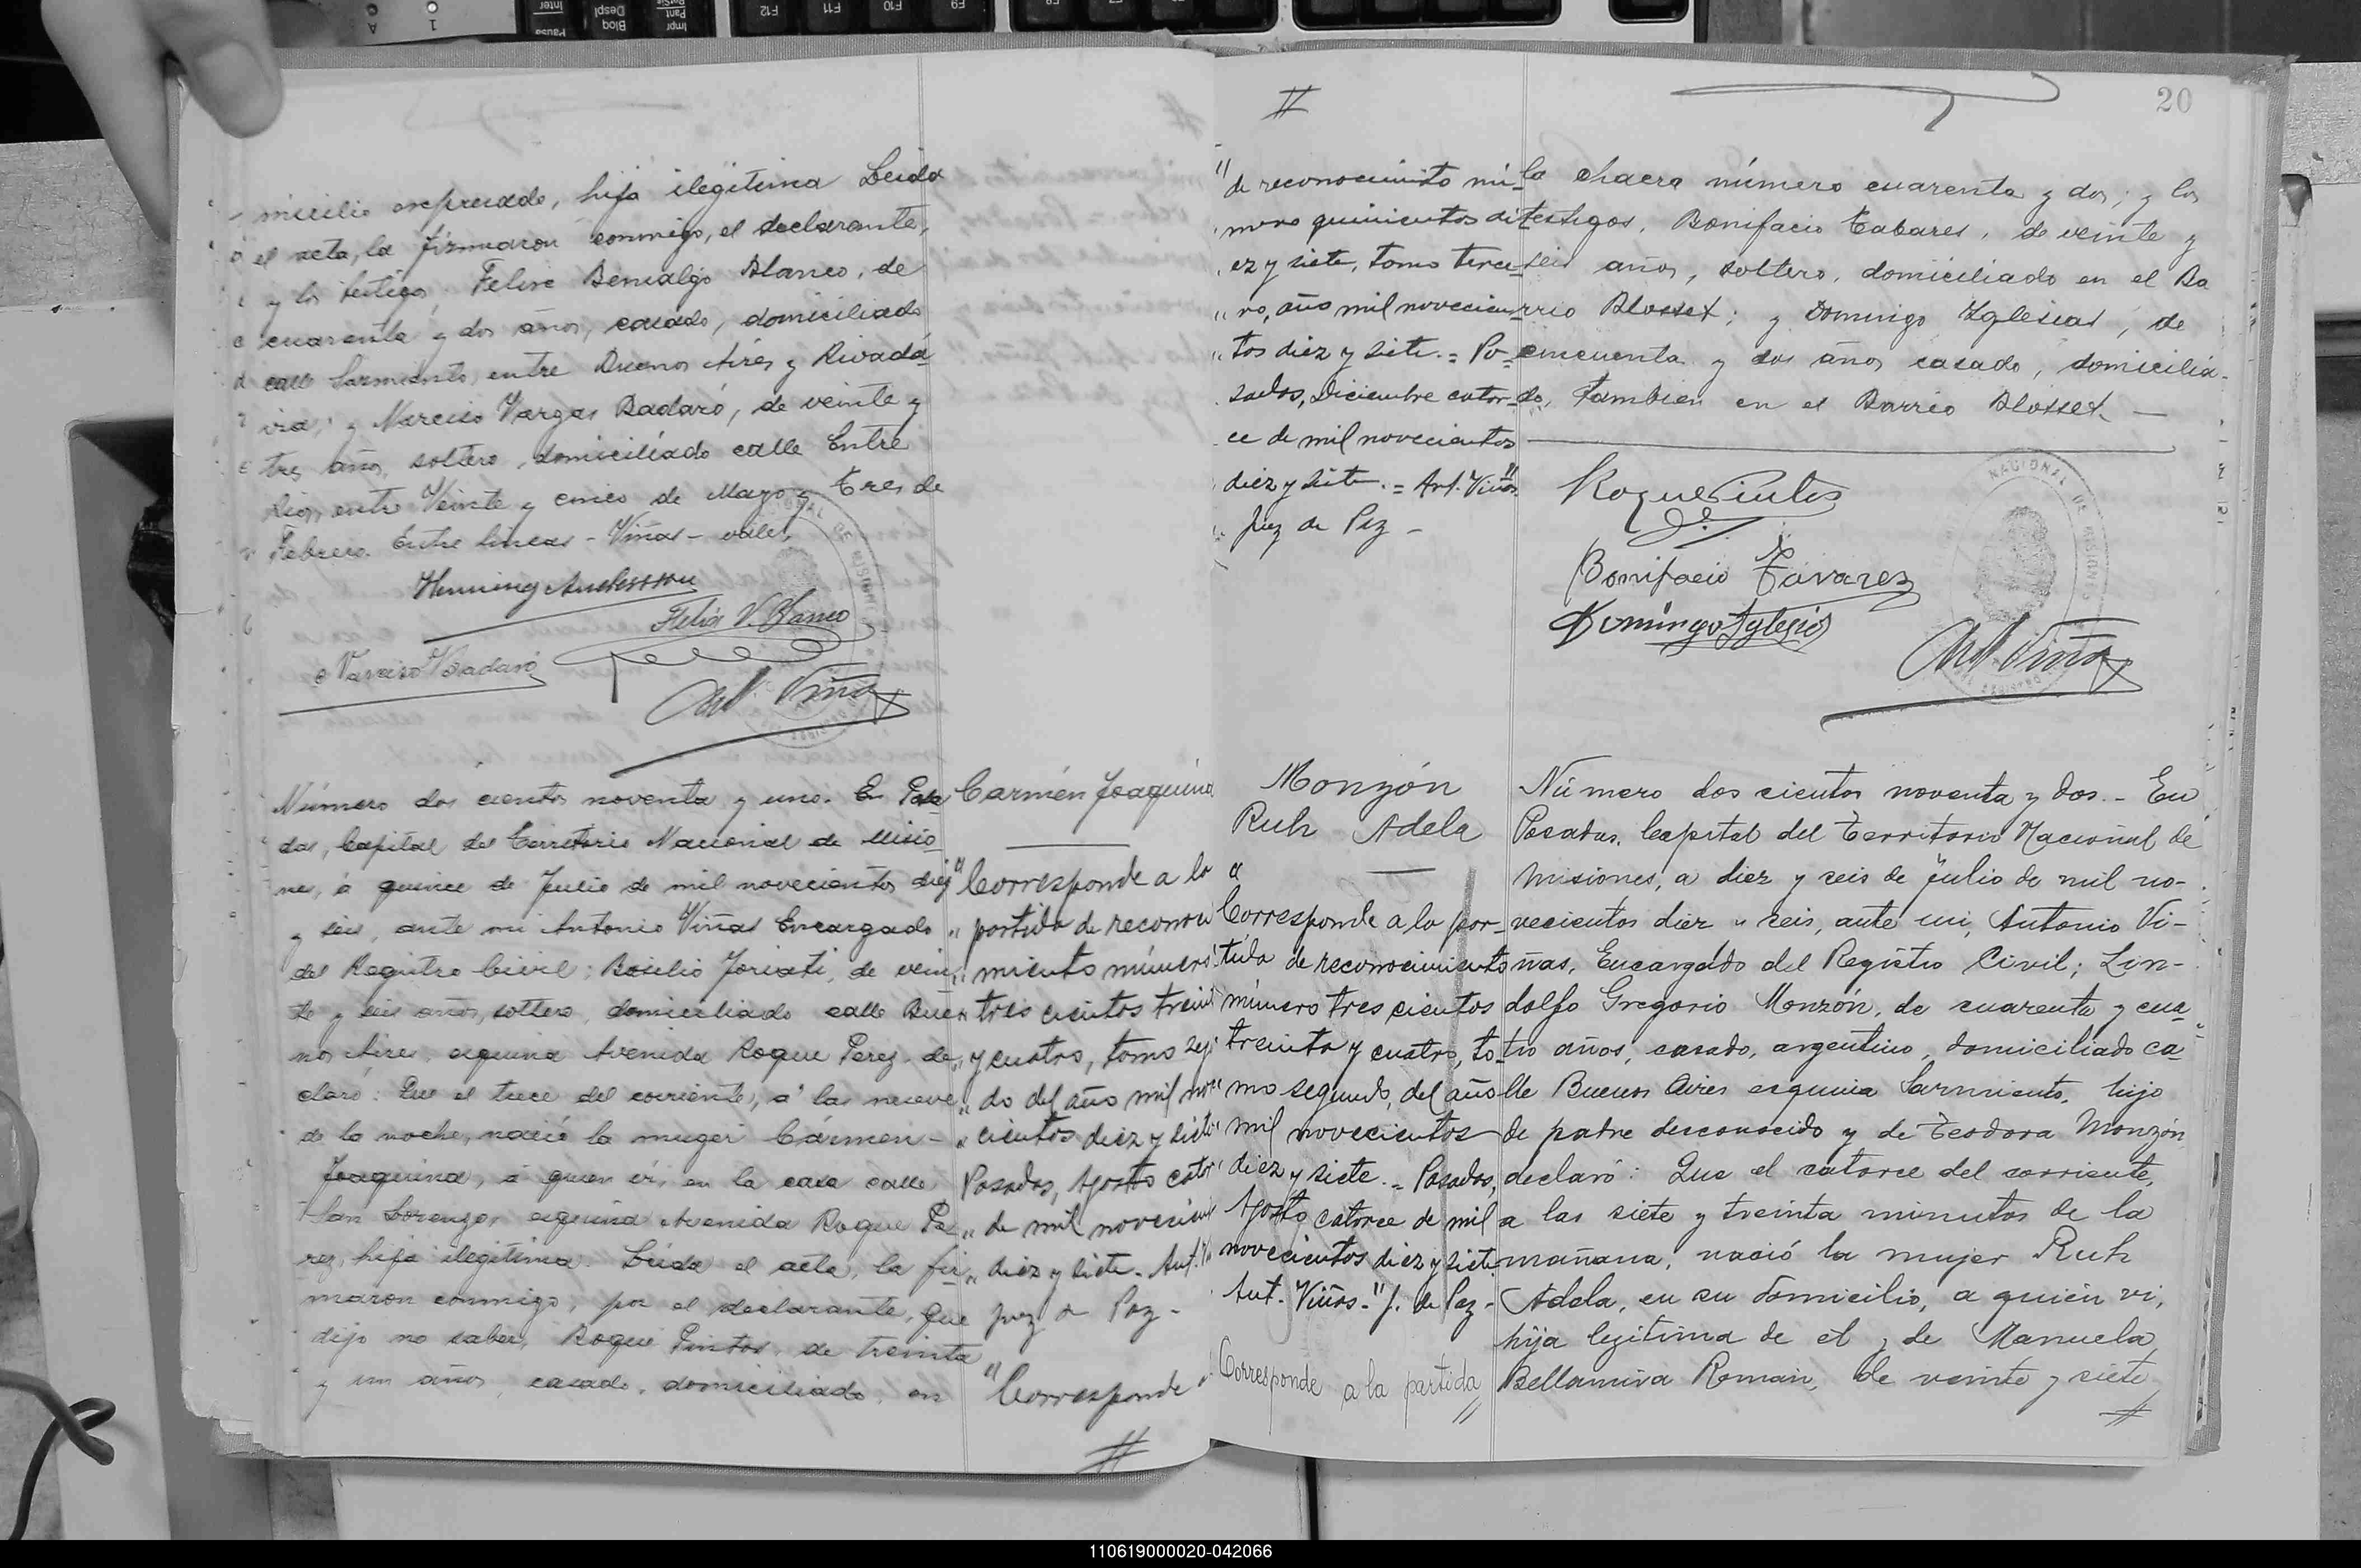 micilio expresado, hija ilegitima Leida
el acta, la firmaron conmigo, el declarante,
y los testigos, Felix Benialgo Blanco, de
cuarenta y dos años, casado, domiciliado
calle Sarmiento, entre Buenos Aires y Rivadá
via; y Narciso Vargas Badaró, de veinte y
tres años, soltero, domiciliado calle Entre
Rios, entre Veinte y cinco de Mayo y Tres de
Febrero. Entre lineas - Viñas - vale,
Henning Andersson
Felix V. Blanco
Narciso V Badaró
Ant Viñas
Número dos cientos noventa y uno. En Posa
das, Capital del Territorio Nacional de Misio
nes, á quince de Julio de mil novecientos diez
y seis, ante mi Antonio Viñas Encargado
del Registro Civil; Basilio, de vein
te y seis años, soltero, domiciliado calle Bue
nos Aires, esquina Avenida Roque Perez, de
claró: Que el trece del corriente, á las nueve
de la noche, nació la muger Cármen
Joaquina, á quien ví, en la casa calle
San Lorenzo, esquina Avenida Roque Pe
rez, hija ilegitima. Leida el acta, la fir
maron conmigo, por el declarante, que
dijo no saber, Roque Pintos, de treinta
y un años, casado, domiciliado, en
Carmén Joaquina
"Corresponde a la
" partida de reconoci
" miento número
" tres cientos treint
" y cuatro, tomo segu
" do del año mil nove
" cientos diez y siete
Posadas, Agosto cator
" de mil novecient
" diez y siete. Ant. V
juez de Paz -
"Corresponde a
#
#
20
" de reconocimiento nú-
mero quinientos di
ez y siete, tomo terce-
" ro, año mil novecien-
" tos diez y siete. = Po-
sadas, Diciembre cator-
ce de mil novecientos
diez y siete. = Ant. Viñas"
juez de Paz -
la chacra número cuarenta y dos; y los
testigos, Bonifacio Tabares, de veinte y
seis años, soltero, domiciliado en el Ba
rrio Blosset; y Domingo Yglesias, de
cincuenta y dos años casado, domicilia-
do, tambien en el Barrio Blosset. —
Roque Pintos
Bonifacio Tavarez
Domingo Yglesias
Ant Viñas
Monzón
Ruth Adela
"
Corresponde a la par-
tida de reconocimiento
número tres cientos
treinta y cuatro, to-
mo segundo, del año
mil novecientos
diez y siete. = Posadas,
Agosto catorce de mil
novecientos diez y siete.
Ant. Viñas-" J. de Paz -
Corresponde a la partida
"
Número dos cientos noventa y dos. - En
Posadas, Capital del Territorio Nacional de
Misiones, a diez y seis de Julio de mil no-
vecientos diez y seis, ante mi, Antonio Vi-
ñas, Encargado del Registro Civil; Lin-
dolfo Gregorio Monzón, de cuarenta y cua
tro años, casado, argentino, domiciliado ca
lle Buenos Aires esquina Sarmiento, hijo
de padre desconocido y de Teodora Monzón
declaró: Que el catorce del corriente,
a las siete y treinta minutos de la
mañana, nació la mujer Ruth
Adela, en su domicilio, a quien vi,
hija legitima de él y de Manuela
Bellamira Roman, de veinte y siete
#
110619000020-042066